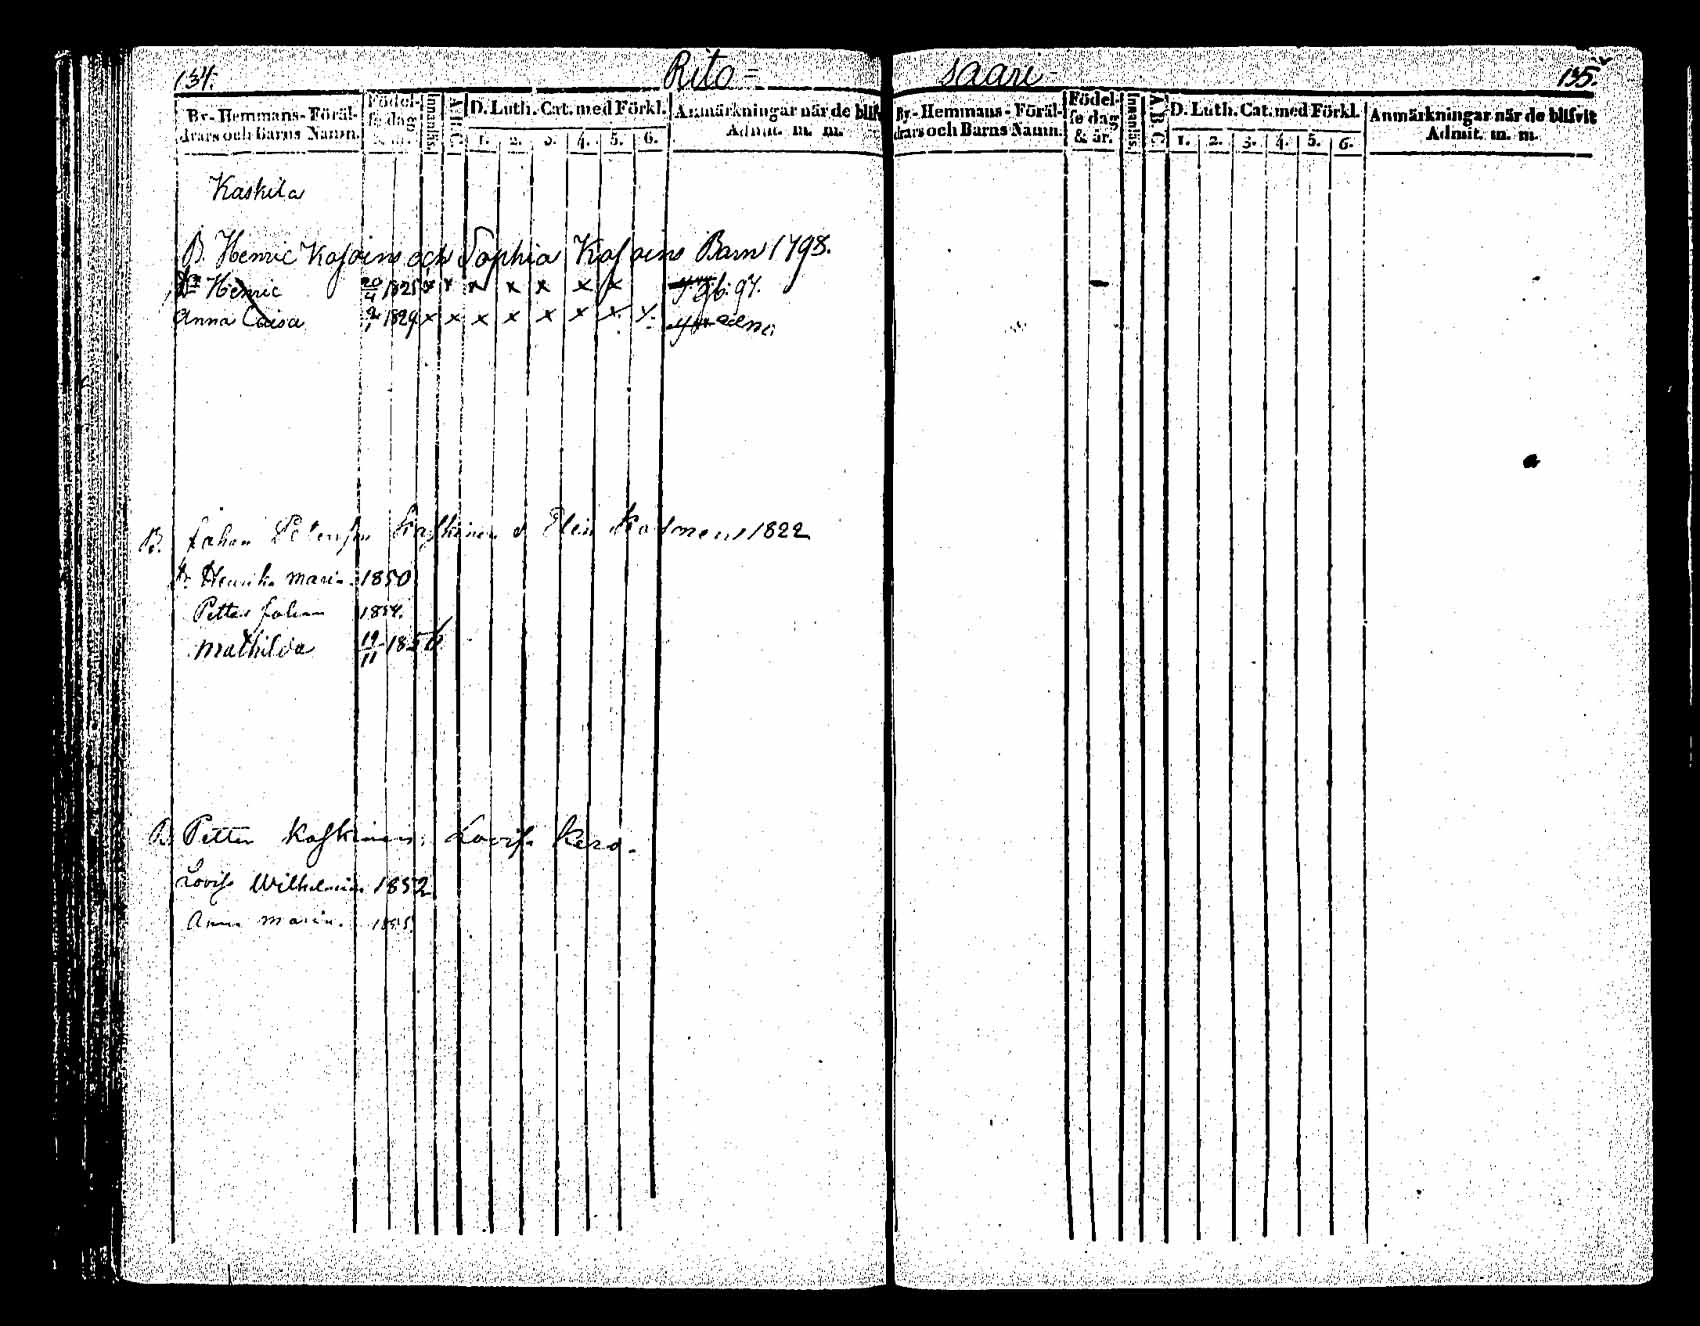 134.
Rito=
By-Hemmans-Föräl-
drars och Barns Namn.
Födel-
se dag
Innanläs.
A B C
D. Luth. Cat. med Förkl.
1. 2. 3. 4. 5. 6.
Anmärkningar när de blif
Admit. m. m.
Kaskila
B. Henric och Sophia Barn 1798.
Henric 20/4 1825 x x x x x x x
Anna Caisa 1829 x x x x x x x x
B. Johan Petersson Kaskinen o Elin 1822
Henrika Maria 1850
Petter Johan 1854.
Mathilda 19/11 1856
B. Petter Kaskinen, Lovisa Kero.
Lovisa Wilhelmina 1852
Anna Maria. 1855
saari
135.
By-Hemmans-Föräl-
drars och Barns Namn.
Födel-
se dag
& år.
Innanläs.
A B C
D. Luth. Cat. med Förkl.
1. 2. 3. 4. 5. 6.
Anmärkningar när de blifvit
Admit. m. m.